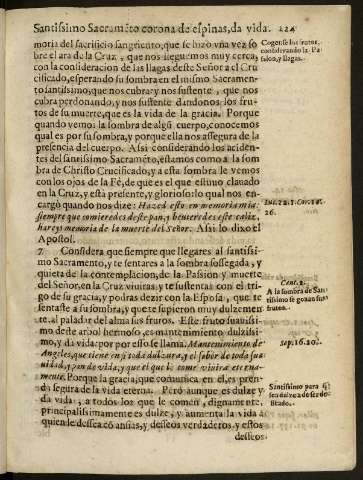 Santissimo Sacramẽto corona de espinas, da vida. 224
moria del sacrificio sangriento, que se hizo vna vez so
bre el ara de la Cruz, que nos lleguemos muy cerca,
con la consideracion de las llagas deste Señor a el Cru
cificado, esperando su sombra en el mismo Sacramen-
to santissimo, que nos cubra, y nos sustente, que nos
cubra perdonando, y nos sustente dandonos los fru-
tos de su muerte, que es la vida de la gracia. Porque
quando vemos la sombra de algũ cuerpo, conocemos
qual es por su sombra, y porque ella nos assegura de la
presencia del cuerpo. Assi considerando los aciden-
tes del santissimo Sacramẽto, estamos como a la som
bra de Christo Crucificado, y a esta sombra le vemos
con los ojos de la Fé, de que es el que estuuo clauado
en la Cruz, y està presente, y glorioso: lo qual nos en-
cargò quando nos dize: Hazed esto en memoria mia:
siempre que comieredes deste pan, y beuieredes este caliz,
hareys memoria de la muerte del Señor. Assi lo dixo el
Apostol.
7. Considera que siempre que llegares al santissi-
mo Sacramento, y te sentares a la sombra sossegada, y
quieta de la contemplacion, de la Passion y muerte
del Señor, en la Cruz viuiras, y te sustentas con el tri-
go de su gracia, y podras dezir con la Esposa, que te
sentaste a su sombra, y que te supieron muy dulzemen
te, al paladar del alma sus frutos. Este fruto suauissi-
mo deste arbol hermoso, es mantenimiento dulzissi-
mo, y da vida: por por esso se llama, Mantenimiento de
Angeles, que tiene en si toda dulzura, y el sabor de toda sua
uidad, y pan de vida, y que el que le come viuira eterna-
mente. Porque la gracia, que comunica en èl, es pren-
da segura de la vida eterna. Pero aunque es dulze y
da vida, a todos los que le comen dignamente,
principalissimamente es dulze, y aumenta la vida a
quien le dessea cõ ansias, y desseos verdaderos, y estos
desseos
Cogense los frutos,
considerando la Pa-
sion, y llagas.
Luc. 22. 1. Cor. 11.
26.
Cant. 2.
A la sombra de San-
tissimo se gozan sus
frutos.
Sap. 16. 20.
Santissimo para q̃
sea dulze a de ser de
seado.